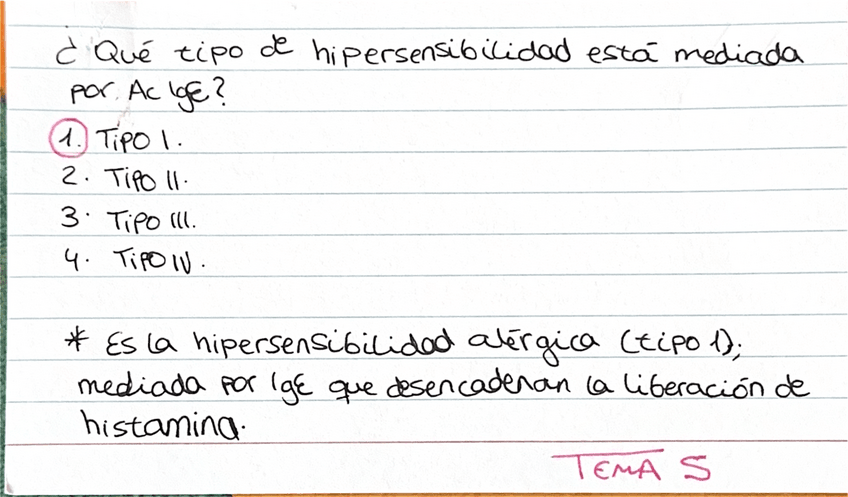 ¿ Qué tipo de hipersensibilidad está mediada
por Ac IgE?
1. TIPO I.
2. TIPO II.
3. TIPO III.
4. TIPO IV.
* Es la hipersensibilidad alérgica (tipo 1);
mediada por IgE que desencadenan la liberación de
histamina.
TEMA 5